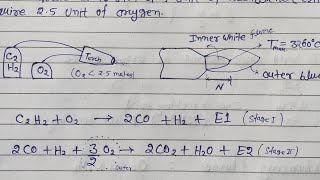 quire 2.5 unit of oxygen.
C2
H2
O2
Torch
(O2 < 2.5 moles)
Inner white flame
Tmax = 3260°C
outer blue
N
C2H2 + O2 → 2CO + H2 + E1 (Stage I)
2CO + H2 + 3/2 O2 → 2CO2 + H2O + E2 (Stage II)
outer